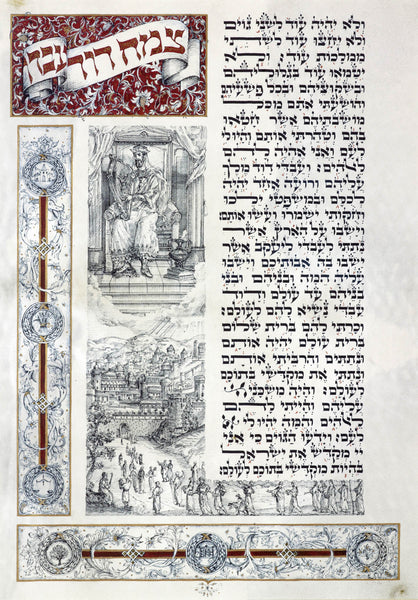 צמח דוד
ולא יהיה עוד לשני גוים
ולא יחצו עוד לשתי
ממלכות עוד: ולא
יטמאו עוד בגלוליהם
ובשקוציהם ובכל פשעיהם
והושעתי אתם מכל
מושבתיהם אשר חטאו
בהם וטהרתי אותם והיו לי
לעם ואני אהיה להם
לאלהים: ועבדי דוד מלך
עליהם ורועה אחד יהיה
לכלם ובמשפטי ילכו
וחקותי ישמרו ועשו אותם:
וישבו על הארץ אשר
נתתי לעבדי ליעקב אשר
ישבו בה אבותיכם וישבו
עליה המה ובניהם ובני
בניהם עד עולם ודוד
עבדי נשיא להם לעולם:
וכרתי להם ברית שלום
ברית עולם יהיה אותם
ונתתים והרביתי אותם
ונתתי את מקדשי בתוכם
לעולם: והיה משכני
עליהם והייתי להם
לאלהים והמה יהיו לי
לעם: וידעו הגוים כי אני
יהוה מקדש את ישראל
בהיות מקדשי בתוכם לעולם: